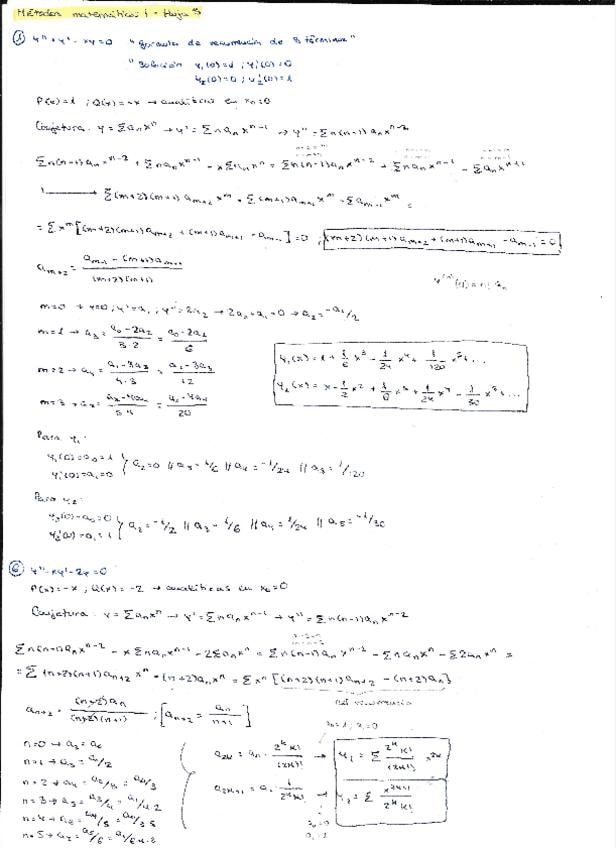 Métodos matemáticos I - Hoja 5
① y'' + y' - xy = 0 "fórmulas de recurrencia de 3 términos"
"Solución y₁(0)=1 ; y₁'(0)=0
y₂(0)=0 ; y₂'(0)=1
P(x)=1 ; Q(x)=-x → analíticas en x₀=0
Conjetura: y = Σaₙxⁿ → y' = Σnaₙxⁿ⁻¹ → y'' = Σn(n-1)aₙxⁿ⁻²
Σn(n-1)aₙxⁿ⁻² + Σnaₙxⁿ⁻¹ - xΣaₙxⁿ = Σn(n-1)aₙxⁿ⁻² + Σnaₙxⁿ⁻¹ - Σaₙxⁿ⁺¹
→ Σ(m+2)(m+1)aₘ₊₂xᵐ + Σ(m+1)aₘ₊₁xᵐ - Σaₘ₋₁xᵐ =
= Σxᵐ[(m+2)(m+1)aₘ₊₂ + (m+1)aₘ₊₁ - aₘ₋₁] = 0 ; (m+2)(m+1)aₘ₊₂ + (m+1)aₘ₊₁ - aₘ₋₁ = 0
aₘ₊₂ = (aₘ₋₁ - (m+1)aₘ₊₁)/((m+2)(m+1))
y⁽ⁿ⁾(0) = n! aₙ
m=0 → y=0 ; y'=a₁ ; y''=2a₂ → 2a₂+a₁=0 → a₂=-a₁/2
m=1 → a₃ = (a₀-2a₂)/(3·2) = (a₀-2a₂)/6
m=2 → a₄ = (a₁-3a₃)/(4·3) = (a₁-3a₃)/12
y₁(x) = 1 + 1/6 x³ - 1/24 x⁴ + 1/120 x⁵ + ...
y₂(x) = x - 1/2 x² + 1/6 x³ + 1/24 x⁴ - 1/30 x⁵ + ...
m=3 → a₅ = (a₂-4a₄)/(5·4) = (a₂-4a₄)/20
Para y₁:
y₁(0)=a₀=1
y₁'(0)=a₁=0 } a₂=0 // a₃=1/6 // a₄=-1/24 // a₅=1/120
Para y₂:
y₂(0)=a₀=0
y₂'(0)=a₁=1 } a₂=-1/2 // a₃=1/6 // a₄=1/24 // a₅=-1/30
⑥ y'' - xy' - 2y = 0
P(x)=-x ; Q(x)=-2 → analíticas en x₀=0
Conjetura: y = Σaₙxⁿ → y' = Σnaₙxⁿ⁻¹ → y'' = Σn(n-1)aₙxⁿ⁻²
Σn(n-1)aₙxⁿ⁻² - xΣnaₙxⁿ⁻¹ - 2Σaₙxⁿ = Σn(n-1)aₙxⁿ⁻² - Σnaₙxⁿ - Σ2aₙxⁿ =
= Σ(n+2)(n+1)aₙ₊₂xⁿ - (n+2)aₙxⁿ = Σxⁿ[(n+2)(n+1)aₙ₊₂ - (n+2)aₙ]
aₙ₊₂ = (n+2)aₙ/((n+2)(n+1)) ; [aₙ₊₂ = aₙ/(n+1)]
recurrencia
a₀=1 ; a₁=0
n=0 → a₂=a₀
n=1 → a₃=a₁/2
n=2 → a₄=a₂/3=a₀/3
n=3 → a₅=a₃/4=a₁/4·2
n=4 → a₆=a₄/5=a₀/3·5
n=5 → a₇=a₅/6=a₁/6·4·2
a₂ₖ = a₀ · 2ᵏk!/(2k)! → y₁ = Σ 2ᵏk!/(2k)! x²ᵏ
a₂ₖ₊₁ = a₁ · 1/2ᵏk! → y₂ = Σ x²ᵏ⁺¹/2ᵏk!
a₀=0
a₁=1